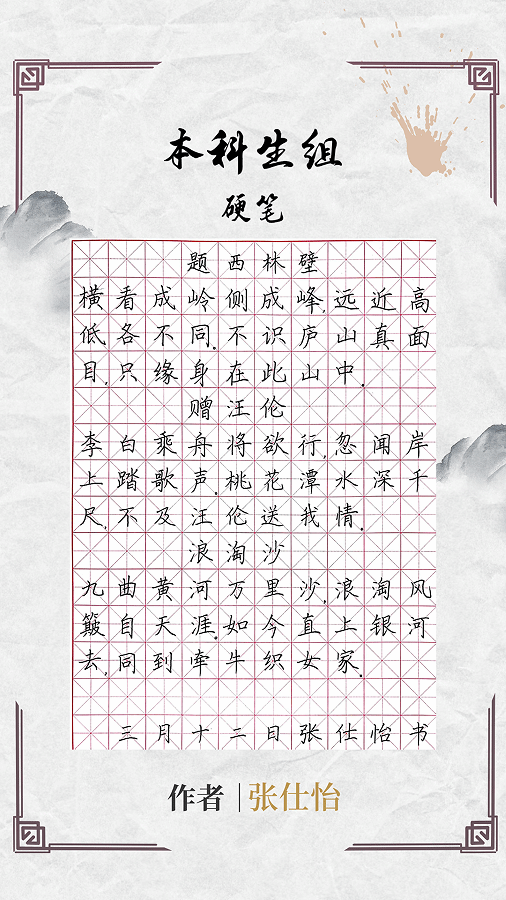 本科生组
硬笔
题西林壁
横看成岭侧成峰,远近高
低各不同.不识庐山真面
目,只缘身在此山中.
赠汪伦
李白乘舟将欲行,忽闻岸
上踏歌声.桃花潭水深千
尺,不及汪伦送我情.
浪淘沙
九曲黄河万里沙,浪淘风
簸自天涯.如今直上银河
去,同到牵牛织女家.
三月十二日张仕怡书
作者|张仕怡